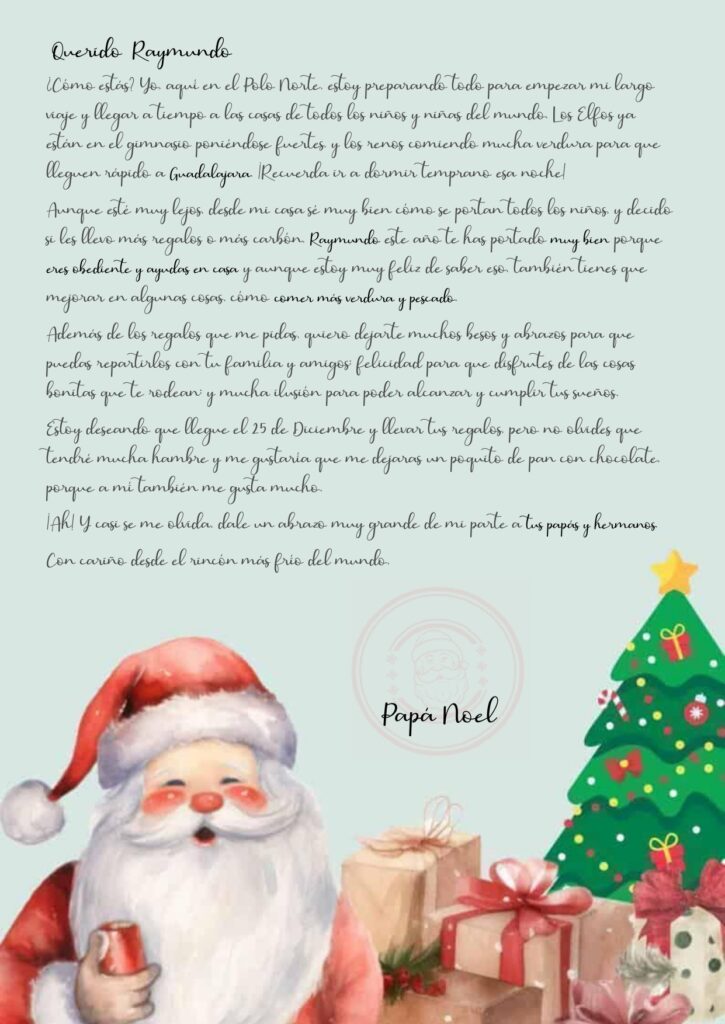 Querido Raymundo
¿Cómo estás? Yo, aquí en el Polo Norte, estoy preparando todo para empezar mi largo
viaje y llegar a tiempo a las casas de todos los niños y niñas del mundo. Los Elfos ya
están en el gimnasio poniéndose fuertes, y los renos comiendo mucha verdura para que
lleguen rápido a Guadalajara. ¡Recuerda ir a dormir temprano esa noche!
Aunque esté muy lejos, desde mi casa sé muy bien cómo se portan todos los niños, y decido
si les llevo más regalos o más carbón. Raymundo este año te has portado muy bien porque
eres obediente y ayudas en casa y aunque estoy muy feliz de saber eso, también tienes que
mejorar en algunas cosas, cómo comer más verdura y pescado.
Además de los regalos que me pidas, quiero dejarte muchos besos y abrazos para que
puedas repartirlos con tu familia y amigos; felicidad para que disfrutes de las cosas
bonitas que te rodean; y mucha ilusión para poder alcanzar y cumplir tus sueños.
Estoy deseando que llegue el 25 de Diciembre y llevar tus regalos, pero no olvides que
tendré mucha hambre y me gustaría que me dejaras un poquito de pan con chocolate,
porque a mí también me gusta mucho.
¡Ah! Y casi se me olvida, dale un abrazo muy grande de mi parte a tus papás y hermanos.
Con cariño desde el rincón más frío del mundo,
Papá Noel